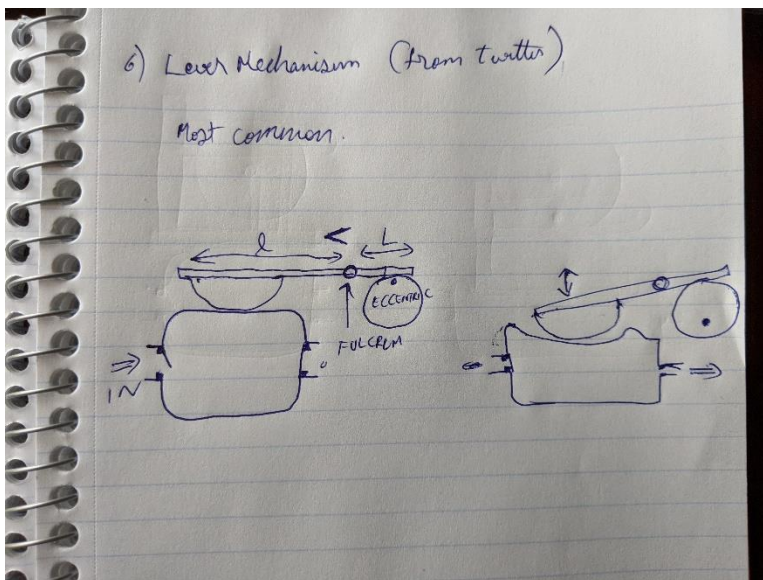 6) Lever Mechanisum (from twitter)
Most common.
l < L
ECCENTRIC
FULCRUM
IN